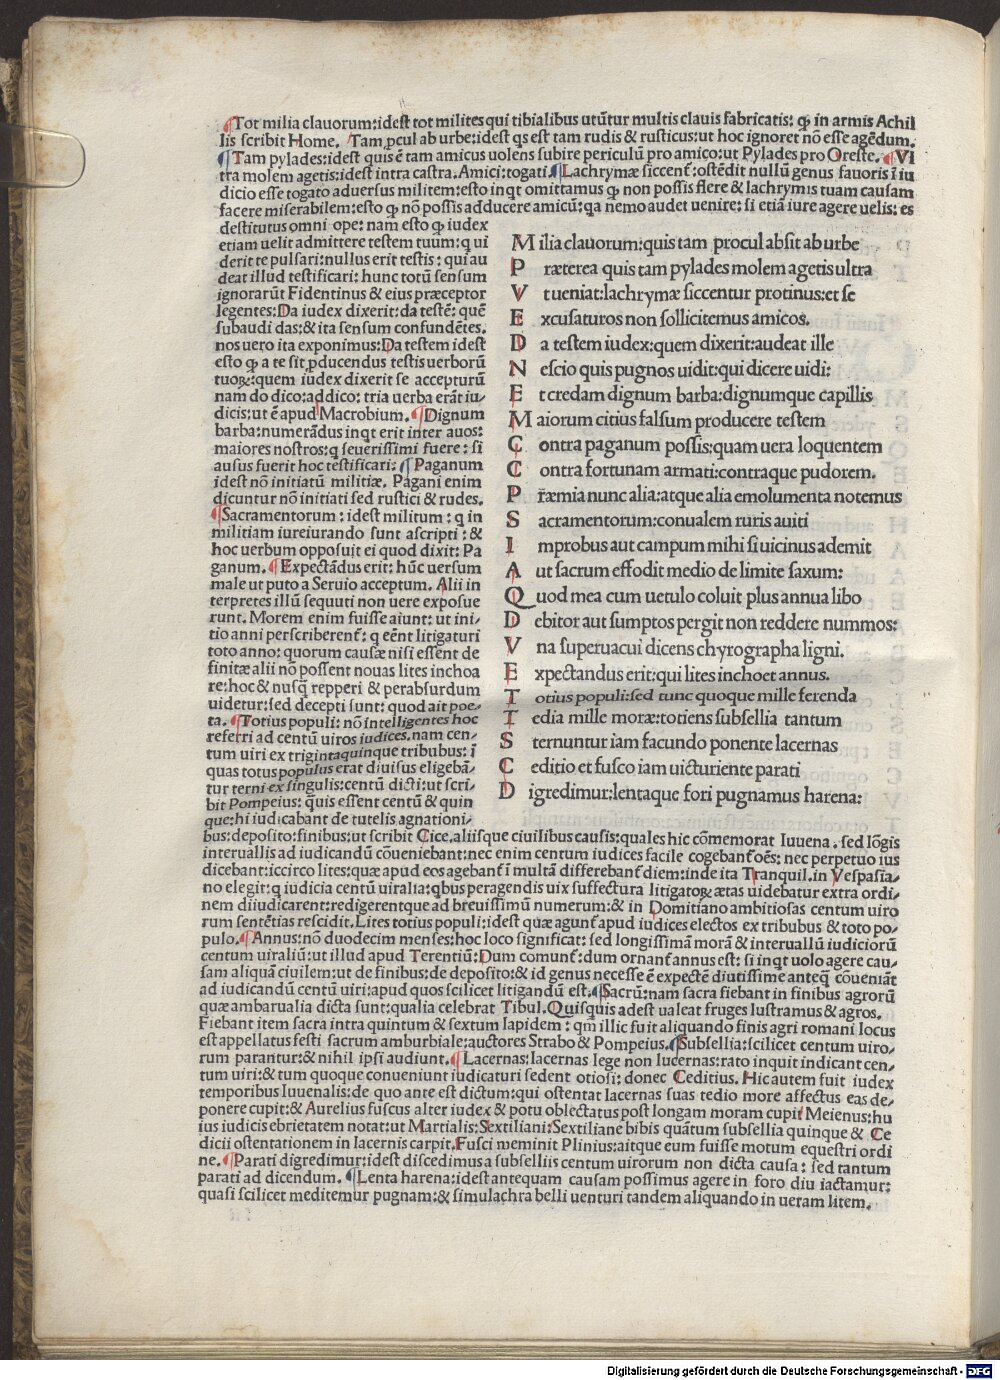 ¶Tot milia clauorum:idest tot milites qui tibialibus utūtur multis clauis fabricatis: ꝙ in armis Achil
lis scribit Home. Tam ꝓcul ab urbe:idest qs est tam rudis & rusticus:ut hoc ignoret nō esse agēdum.
¶Tam pylades:idest quis ē tam amicus uolens subire periculū pro amico:ut Pylades pro Oreste.¶Vl
tra molem agetis:idest intra castra.Amici:togati.¶Lachrymæ siccent̃:ostēdit nullū genus fauoris ī iu
dicio esse togato aduersus militem:esto inqt omittamus ꝙ non possis flere & lachrymis tuam causam
facere miserabilem:esto ꝙ nō possis adducere amicū:qa nemo audet uenire: si etiā iure agere uelis: es
destitutus omni ope: nam esto ꝙ iudex
etiam uelit admittere testem tuum:q ui
derit te pulsari:nullus erit testis: qui au
deat illud testificari: hunc totū sensum
ignorarūt Fidentinus & eius præceptor
legentes:Da iudex dixerit:da testē: quē
subaudi das:& ita sensum confundētes.
nos uero ita exponimus:Da testem idest
esto ꝙ a te sit ꝓducendus testis uerborū
tuoꝝ:quem iudex dixerit se accepturū
nam do dico:addico: tria uerba erāt iu/
dicis:ut ē apud Macrobium. ¶Dignum
barba:numerādus inqt erit inter auos:
maiores nostros:q seuerissimi fuere: si
ausus fuerit hoc testificari: ¶Paganum
idest nō initiatū militiæ. Pagani enim
dicuntur nō initiati sed rustici & rudes.
¶Sacramentorum: idest militum: q in
militiam iureiurando sunt ascripti: &
hoc uerbum opposuit ei quod dixit: Pa
ganum.¶Expectādus erit: hūc uersum
male ut puto a Seruio acceptum. Alii in
terpretes illū sequuti non uere exposue
runt. Morem enim fuisse aiunt: ut ini/
tio anni perscriberent̃: q eēnt litigaturi
toto anno: quorum causæ nisi essent de
finitæ alii nō possent nouas lites inchoa
re:hoc & nusq̄ repperi & perabsurdum
uidetur:sed decepti sunt: quod ait poe/
ta. ¶Totius populi: nō intelligentes hoc
referri ad centū uiros iudices.nam cen/
tum uiri ex trigintaquinque tribubus: ī
quas totus populus erat diuisus eligebā/
tur terni ex singulis:centū dicti:ut scri/
bit Pompeius: q̄uis essent centū & quin
que:hi iudicabant de tutelis agnationi/
M ilia clauorum:quis tam procul absit ab urbe
P ræterea quis tam pylades molem agetis ultra
V t ueniat:lachrymæ siccentur protinus:et se
E xcusaturos non sollicitemus amicos.
D a testem iudex:quem dixerit:audeat ille
N escio quis pugnos uidit:qui dicere uidi:
E t credam dignum barba:dignumque capillis
M aiorum citius falsum producere testem
C ontra paganum possis:quam uera loquentem
C ontra fortunam armati:contraque pudorem.
P ræmia nunc alia:atque alia emolumenta notemus
S acramentorum:conualem ruris auiti
I mprobus aut campum mihi si uicinus ademit
A ut sacrum effodit medio de limite saxum:
Q uod mea cum uetulo coluit plus annua libo
D ebitor aut sumptos pergit non reddere nummos:
V na superuacui dicens chyrographa ligni.
E xpectandus erit:qui lites inchoet annus.
T otius populi:sed tunc quoque mille ferenda
T edia mille moræ:totiens subsellia tantum
S ternuntur iam facundo ponente lacernas
C editio et fusco iam uicturiente parati
D igredimur:lentaque fori pugnamus harena:
bus:deposito:finibus:ut scribit Cice.aliisque ciuilibus causis:quales hic cōmemorat Iuuena. sed lōgis
interuallis ad iudicandū cōueniebant:nec enim centum iudices facile cogebant̃ oēs: nec perpetuo ius
dicebant:iccirco lites:quæ apud eos agebant̃ ī multā differebant̃ diem:inde ita Tranquil.in Vespasia/
no elegit:q iudicia centū uiralia:qbus peragendis uix suffectura litigatoꝝ ætas uidebatur extra ordi/
nem diiudicarent:redigerentque ad breuissimū numerum:& in Domitiano ambitiosas centum uiro
rum sentētias rescidit.Lites totius populi:idest quæ agunt̃ apud iudices electos ex tribubus & toto po/
pulo.¶Annus:nō duodecim menses:hoc loco significat: sed longissimā morā & interuallū iudiciorū
centum uiraliū:ut illud apud Terentiū:Dum comunt̃:dum ornant̃ annus est: si inqt uolo agere cau/
sam aliquā ciuilem:ut de finibus:de deposito:& id genus necesse ē expectē diutissime anteq̄ cōueniāt
ad iudicandū centū uiri:apud quos scilicet litigandū est.¶Sacrū:nam sacra fiebant in finibus agrorū
quæ ambarualia dicta sunt:qualia celebrat Tibul.Quisquis adest ualeat fruges lustramus & agros.
Fiebant item sacra intra quintum & sextum lapidem: qm̄ illic fuit aliquando finis agri romani locus
est appellatus festi sacrum amburbiale:auctores Strabo & Pompeius.¶Subsellia:scilicet centum uiro/
rum parantur:& nihil ipsi audiunt.¶Lacernas:lacernas lege non lucernas:rato inquit indicant cen/
tum uiri:& tum quoque conueniunt iudicaturi sedent otiosi: donec Ceditius. Hic autem fuit iudex
temporibus Iuuenalis:de quo ante est dictum:qui ostentat lacernas suas tedio more affectus eas de/
ponere cupit:& Aurelius fuscus alter iudex & potu oblectatus post longam moram cupit Meienus:hu
ius iudicis ebrietatem notat:ut Martialis:Sextiliani:Sextiliane bibis quātum subsellia quinque & Ce
dicii ostentationem in lacernis carpit.Fusci meminit Plinius:aitque eum fuisse motum equestri ordi
ne.¶Parati digredimur:idest discedimus a subselliis centum uirorum non dicta causa: sed tantum
parati ad dicendum.¶Lenta harena:idest antequam causam possimus agere in foro diu iactamur:
quasi scilicet meditemur pugnam:& simulachra belli uenturi tandem aliquando in ueram litem.
Digitalisierung gefördert durch die Deutsche Forschungsgemeinschaft - DFG